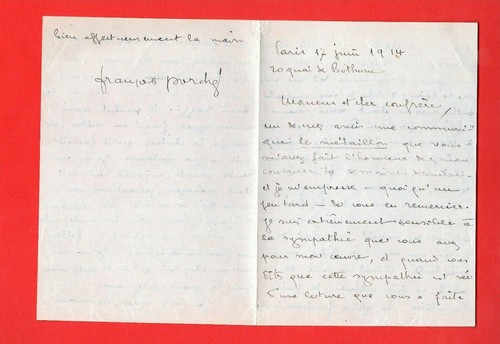 bien affectueusement la main.
françois porché
Paris 17 juin 1914
20 quai de Béthune
Monsieur et cher confrère,
un de mes amis me communi-
que le médaillon que vous
m'avez fait l'honneur de me
consacrer la semaine dernière
et je m'empresse - quoiqu'un
peu tard - de vous en remercier.
Je suis extrêmement sensible à
la sympathie que vous avez
pour mon œuvre, et quand vous
dites que cette sympathie est née
d'une lecture que vous a faite